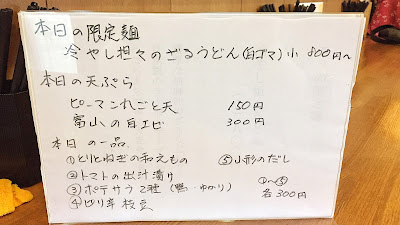 本日の限定麺
冷やし担々のざるうどん(白ゴマ)小 800円〜
本日の天ぷら
ピーマンまれごと天 150円
富山の白エビ 300円
本日の一品
①とりとねぎの和えもの ⑤山形のだし
②トマトの出汁漬け
③ポテサラ2種(鴨・ゆかり) ①〜⑤
④ピリ辛枝豆 各300円